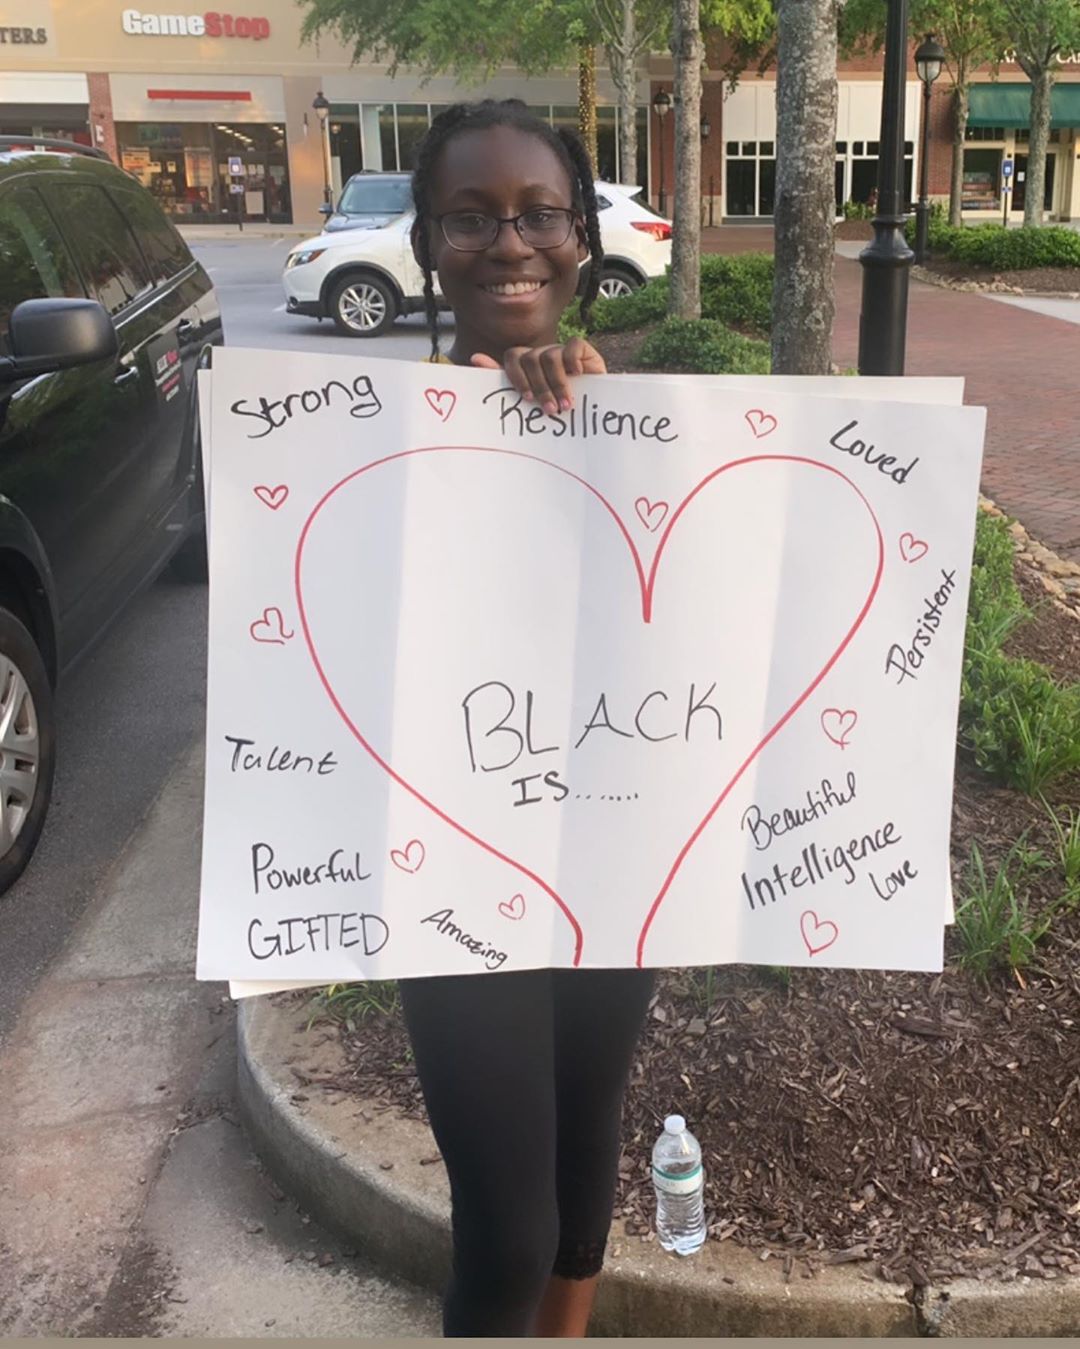 TERS
GameStop
Strong
Resilience
Loved
Persistent
BLACK
IS........
Talent
Powerful
GIFTED
Amazing
Beautiful
Intelligence
Love